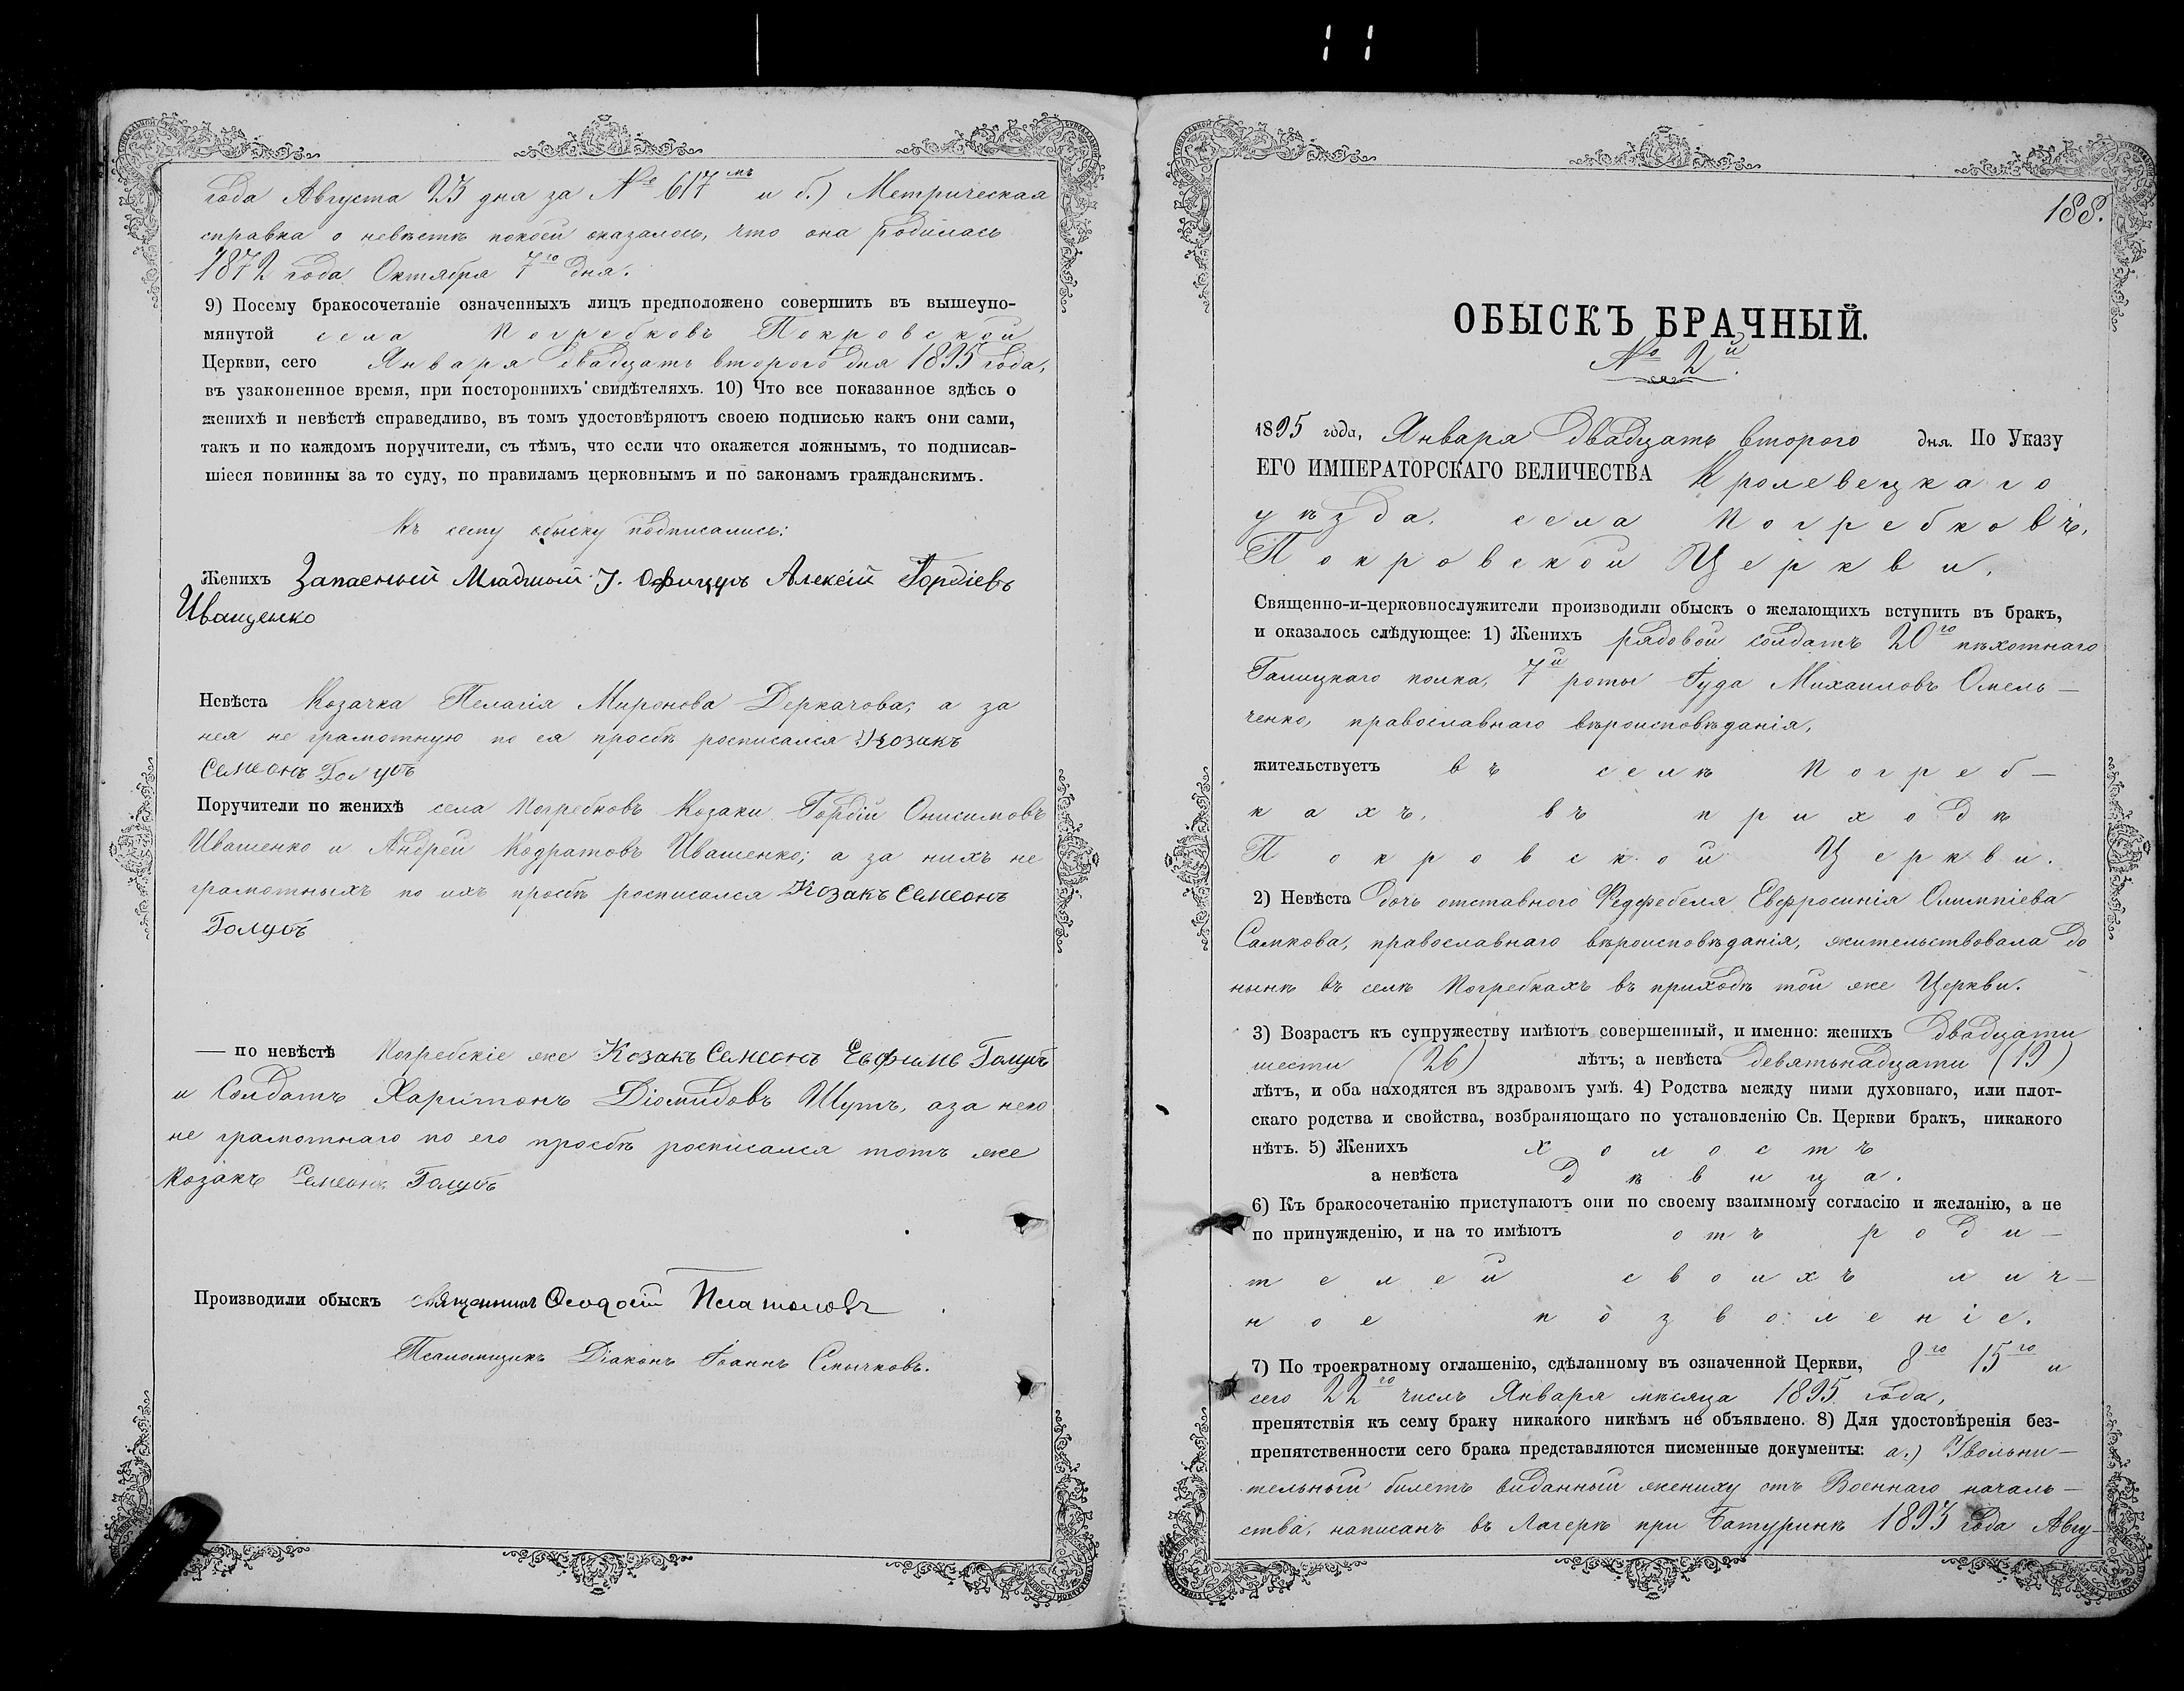 года Августа 23 дня за № 617мъ и б.) Метрическая
справка о невѣстѣ покоей оказалось, что она родилась
1872 года Октября 7го дня.
9) Посему бракосочетаніе означенныхъ лицъ предположено совершить въ вышеупо-
мянутой села Погребковъ Покровской
Церкви, сего Января двадцать второго дня 1895 года,
въ узаконенное время, при постороннихъ свидѣтеляхъ. 10) Что все показанное здѣсь о
женихѣ и невѣстѣ справедливо, въ томъ удостовѣряютъ своею подписью какъ они сами,
такъ и по каждомъ поручители, съ тѣмъ, что если что окажется ложнымъ, то подписав-
шіеся повинны за то суду, по правиламъ церковнымъ и по законамъ гражданскимъ.
Къ сему обыску подписались:
Женихъ Запасный Младшій У. Офицеръ Алексій Гордіевъ
Иващенко
Невѣста Козачка Пелагія Миронова Деркачова; а за
нея не грамотную по ея просбѣ росписался Козакъ
Семеонъ Голубъ
Поручители по женихѣ села Погребковъ Козаки Гордій Онисимовъ
Ивашенко и Андрей Кодратовъ Ивашенко; а за нихъ не
грамотныхъ по ихъ просбѣ росписался Козакъ Семеонъ
Голубъ
— по невѣстѣ Погребскіе же Козакъ Семеонъ Евфиме Голубъ
и Солдатъ Харитонъ Діомидовъ Шутъ, а за него
не грамотнаго по его просбѣ росписался тотъ же
Козакъ Семеонъ Голубъ
Производили обыскъ священникъ Ѳеодосій Платоновъ
Псаломщикъ Діаконъ Іоаннъ Смычковъ.
188.
ОБЫСКЪ БРАЧНЫЙ.
№ 2й.
1895 года, Января двадцать второго дня. По Указу
ЕГО ИМПЕРАТОРСКАГО ВЕЛИЧЕСТВА Кролевецкаго
уѣзда, села Погребковъ,
Покровской Церкви,
Священно-и-церковнослужители производили обыскъ о желающихъ вступить въ бракъ,
и оказалось слѣдующее: 1) Женихъ рядовой солдатъ 20го пѣхотнаго
Галицкаго полка, 7й роты Іуда Михаиловъ Омель-
ченко, православнаго вѣроисповѣданія,
жительствуетъ въ селѣ Погреб-
кахъ, въ приходѣ
Покровской Церкви.
2) Невѣста дочь отставного Федфебеля Евфросинія Олимпіева
Самкова, православнаго вѣроисповѣданія, жительствовала до
нынѣ въ селѣ Погребкахъ въ приходѣ той же Церкви.
3) Возрастъ къ супружеству имѣютъ совершенный, и именно: женихъ двадцати
шести (26) лѣтъ; а невѣста девятьнадцати (19)
лѣтъ, и оба находятся въ здравомъ умѣ. 4) Родства между ними духовнаго, или плот-
скаго родства и свойства, возбраняющаго по установленію Св. Церкви бракъ, никакого
нѣтъ. 5) Женихъ холостъ
а невѣста дѣвица.
6) Къ бракосочетанію приступаютъ они по своему взаимному согласію и желанію, а не
по принужденію, и на то имѣютъ отъ роди-
телей своихъ лич-
ное позволеніе.
7) По троекратному оглашенію, сдѣланному въ означенной Церкви, 8го 15го и
сего 22го числъ Января мѣсяца 1895 года,
препятствія къ сему браку никакого никѣмъ не объявлено. 8) Для удостовѣренія без-
препятственности сего брака представляются писменные документы: а.) Увольни-
тельный билетъ виданный жениху отъ Военнаго началь-
ства, написанъ въ Лагерѣ при Батуринѣ 1893 года Авгу-